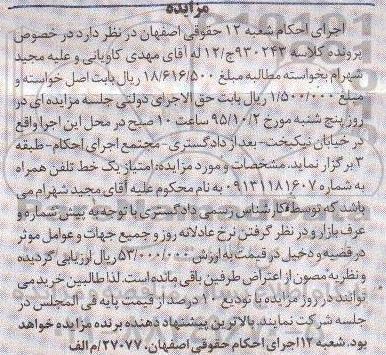 مزایده
اجرای احکام شعبه ۱۲ حقوقی اصفهان در نظر دارد در خصوص
پرونده کلاسه ۹۳۰۲۴۳ج/۱۲ له آقای مهدی کاویانی و علیه مجید
شهرام بخواسته مطالبه مبلغ ۱۸/۶۱۶/۵۰۰ ریال بابت اصل خواسته و
مبلغ ۱/۵۰۰/۰۰۰ ریال بابت حق الاجرای دولتی جلسه مزایده ای در
روز پنج شنبه مورخ ۹۵/۱۰/۲ ساعت ۱۰ صبح در محل این اجرا واقع
در خیابان نیکبخت- بعد از دادگستری - مجتمع اجرای احکام- طبقه
۳ برگزار نماید. مشخصات و مورد مزایده: امتیاز یک خط تلفن همراه
به شماره ۰۹۱۳۱۱۸۱۶۰۷ به نام محکوم علیه آقای مجید شهرام می
باشد که توسط کارشناس رسمی دادگستری با توجه به پیش شماره و
عرف بازار و در نظر گرفتن نرخ عادلانه روز و جمیع جهات و عوامل موثر
در قضیه و دخیل در قیمت به ارزش ۵۳/۰۰۰/۰۰۰ ریال ارزیابی گردیده
و نظریه مصون از اعتراض طرفین باقی مانده است. لذا طالبین خرید می
توانند در روز مزایده با تودیع ۱۰ درصد از قیمت پایه فی المجلس در
جلسه شرکت نمایند. بالاترین پیشنهاد دهنده برنده مزایده خواهد
بود. شعبه ۱۲ اجرای احکام حقوقی اصفهان. ۲۷۰۷۷/م الف